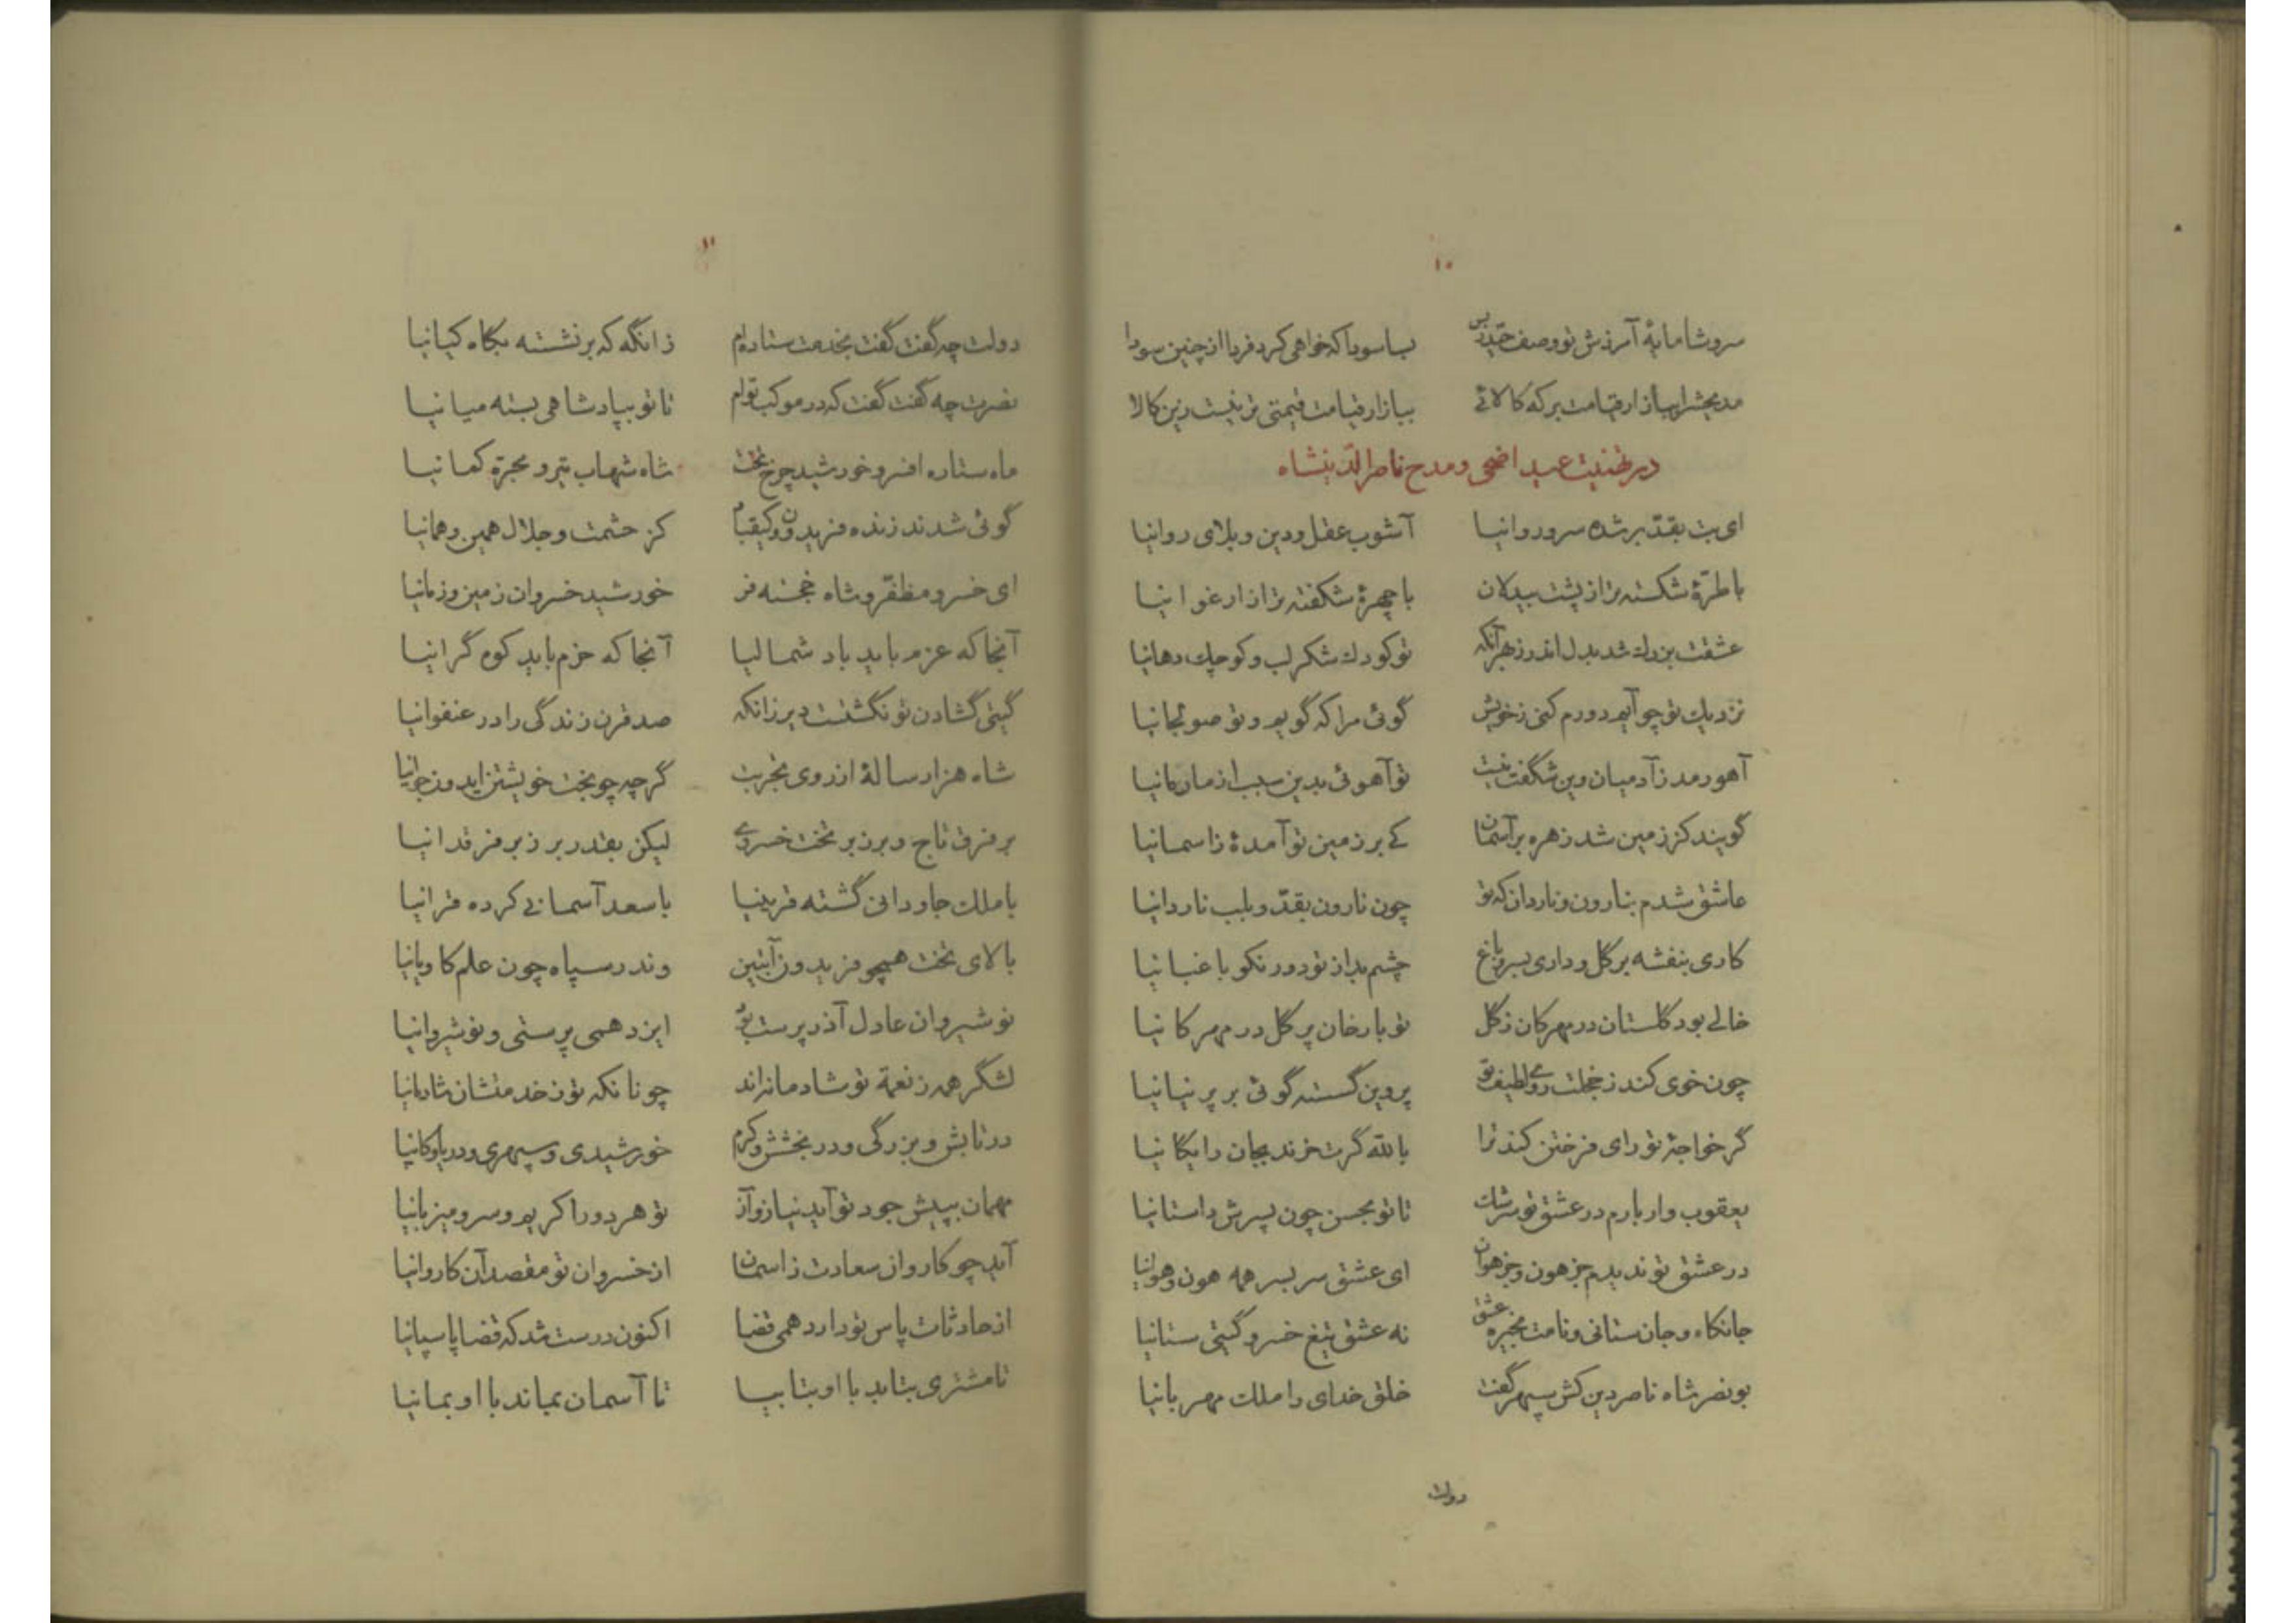 ۱۰
سروشا مایهٔ آمرزش تو وصف حیدر بس بسا سودا که خواهی کرد فردا از چنین سودا
به محشر از بازار قیامت هر که کالائی ببازار قیامت قیمتی تر نیست زین کالا
در تهنیت عید اضحی و مدح ناصرالدینشاه
ای بت بقد بر شده سرو روانیا آشوب عقل و دین و بلای روانیا
با طرّهٔ شکسته تر از پشت بیدلان با چهرهٔ شکفته تر از ارغوانیا
عشقت بزرك شد بدل اندر ز بهر آنکه تو کودك شکر لب و کوچك دهانیا
نزدیك تو چو آیم دورم کنی ز خویش گوئی مرا که گویم و تو صولجانیا
آهو رمد ز آدمیان وین شگفت نیست تو آهوئی بدین سبب از ما رمانیا
گویند کز زمین شد زهره بر آسمان کے بر زمین تو آمدهٔ ز اسمانیا
عاشق شدم بنارون و ناردان که تو چون نارون بقدّ و بلب ناردانیا
کاری بنفشه بر گل و داری بسرو باغ چشم بد از تو دور نکو باغبانیا
خالے بود گلستان در مهرکان ز گل تو با رخان پر گل در مهرکانیا
چون خوی کند ز خجلت روی لطیف تو پروین گسسته گوئی بر پرنیانیا
گر خواجهٔ تو رای فرختن کند ترا بالله گرت خرند بجان رایگانیا
یعقوب وار بارم در عشق تو سرشك تا تو بحسن چون پسرش داستانیا
در عشق تو ندیدم جز هون و جز هوان ای عشق سر بسر همه هون و هوانیا
جانکاه و جان ستانی و نامت بخیره عشق نه عشق تیغ خسرو گیتی ستانیا
بو نصر شاه ناصر دین کش سپهر گفت خلق خدای را ملك مهربانیا
دولت
۱۱
دولت چه گفت گفت بخدمت ستاده‌ام زانگه که بر نشسته بگاه کیانیا
نصرت چه گفت گفت که در موکب توام تا تو بپادشاهی بسته میانیا
ماه ستاره افسر و خورشید چرخ تخت شاه شهاب تیر و مجرّه کمانیا
گوئی شدند زنده فریدون و کیقباد کز حشمت و جلال همین و همانیا
ای خسرو مظفّر و شاه خجسته فر خورشید خسروان زمین و زمانیا
آنجا که عزم باید باد شمالیا آنجا که حزم باید کوه گرانیا
گیتی گشادن تو نگشتست دیر زانکه صد قرن زندگی را در عنفوانیا
شاه هزار سالهٔ از روی تجربت گرچه چو بخت خویشتن ایدون جوانیا
بر فرق تاج و برزبر تخت خسروے لیکن بقدر بر زبر فرقدانیا
با ملك جاودانی گشته قرینیا با سعد آسمانے کرده قرانیا
بالای تخت همچو فریدون آبتین وندر سپاه چون علم کاویانیا
نوشیروان عادل آذر پرست بود ایزد همی پرستی و نوشیروانیا
لشگر همه ز نعمة تو شادمانه‌اند چونانکه تو ز خدمتشان شادمانیا
در تابش و بزرگی و در بخشش و کرم خورشیدی و سپهری و دریا و کانیا
مهمان بپیش جود تو آید نیاز و آز تو هر دو را کریم و سر و میزبانیا
آید چو کاروان سعادت ز اسمان از خسروان تو مقصد آن کاروانیا
از حادثات پاس تو دارد همی قضا اکنون درست شد که قضا پاسبانیا
تا مشتری بتابد با او بتابیا تا آسمان بماند با او بمانیا